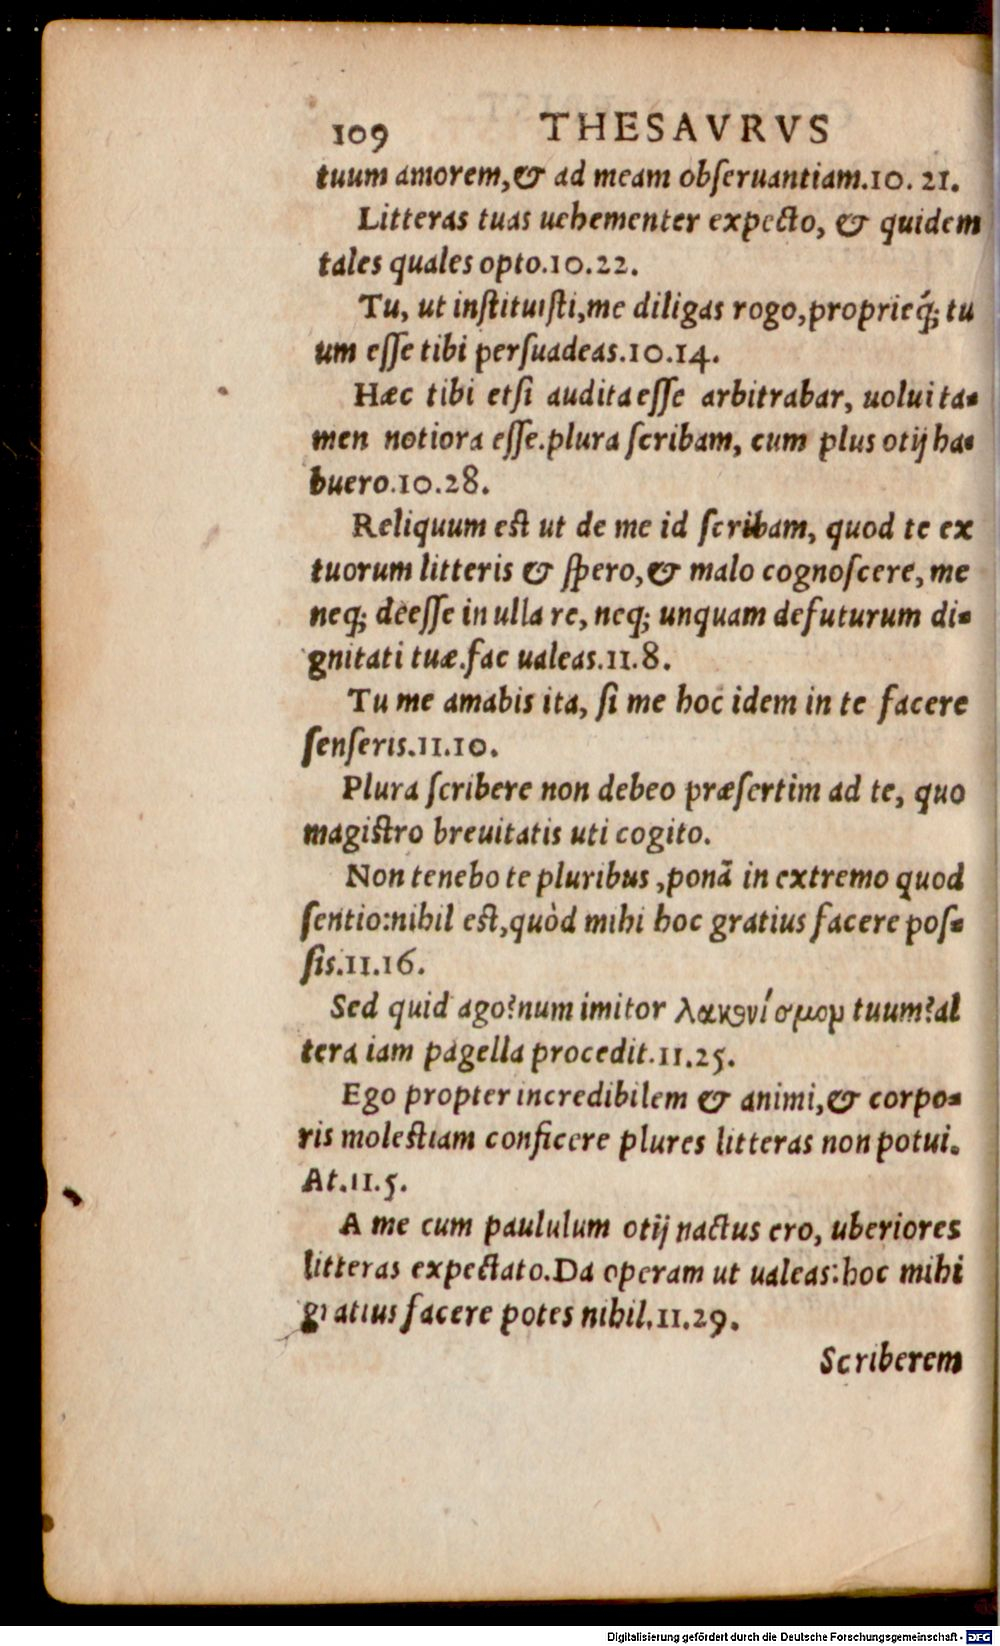 109 THESAVRVS
tuum amorem,& ad meam obſeruantiam.10. 21.
Litteras tuas uehementer expecto, & quidem
tales quales opto.10.22.
Tu, ut inſtituiſti,me diligas rogo,proprieq́; tu
um eſſe tibi perſuadeas.10.14.
Hæc tibi etſi audita eſſe arbitrabar, uolui ta-
men notiora eſſe.plura ſcribam, cum plus otij ha-
buero.10.28.
Reliquum eſt ut de me id ſcribam, quod te ex
tuorum litteris & ſpero,& malo cognoſcere, me
neq; deeſſe in ulla re, neq; unquam defuturum di-
gnitati tuæ.fac ualeas.11.8.
Tu me amabis ita, ſi me hoc idem in te facere
ſenſeris.11.10.
Plura ſcribere non debeo præſertim ad te, quo
magiſtro breuitatis uti cogito.
Non tenebo te pluribus ,ponā in extremo quod
ſentio:nihil eſt,quòd mihi hoc gratius facere poſ-
ſis.11.16.
Sed quid ago?num imitor λακωνίσμον tuum?al
tera iam pagella procedit.11.25.
Ego propter incredibilem & animi,& corpo-
ris moleſtiam conficere plures litteras non potui.
At.11.5.
A me cum paululum otij nactus ero, uberiores
litteras expectato.Da operam ut ualeas:hoc mihi
gratius facere potes nihil.11.29.
Scriberem
Digitalisierung gefördert durch die Deutsche Forschungsgemeinschaft - DFG